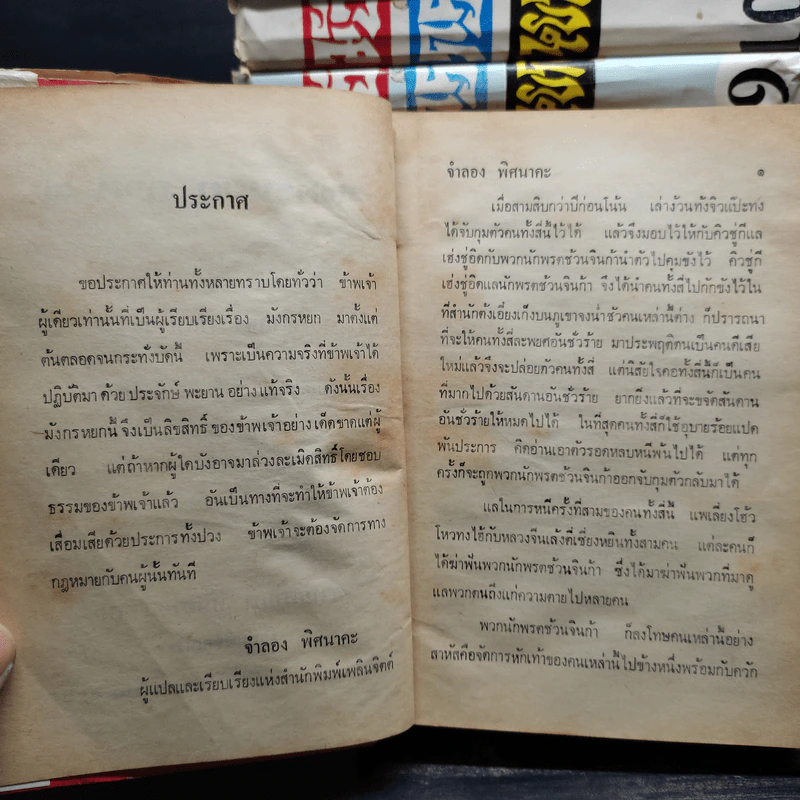 ๑0
9
ประกาศ
ขอประกาศให้ท่านทั้งหลายทราบโดยทั่วว่า ข้าพเจ้า
ผู้เดียวเท่านั้นที่เป็นผู้เรียบเรียงเรื่อง มังกรหยก มาตั้งแต่
ต้นตลอดจนกระทั่งบัดนี้ เพราะเป็นความจริงที่ข้าพเจ้าได้
ปฏิบัติมา ด้วย ประจักษ์ พะยาน อย่าง แท้จริง ดังนั้นเรื่อง
มังกรหยกนี้ จึงเป็นลิขสิทธิ์ ของข้าพเจ้าอย่าง เด็ดขาดแต่ผู้
เดียว แต่ถ้าหากผู้ใดบังอาจมาล่วงละเมิดสิทธิ์โดยชอบ
ธรรมของข้าพเจ้าแล้ว อันเป็นทางที่จะทำให้ข้าพเจ้าต้อง
เสื่อมเสียด้วยประการทั้งปวง ข้าพเจ้าจะต้องจัดการทาง
กฎหมายกับคนผู้นั้นทันที
จำลอง พิศนาคะ
ผู้แปลและเรียบเรียงแห่งสำนักพิมพ์เพลินจิตต์
จำลอง พิศนาคะ ๑
เมื่อสามสิบกว่าปีก่อนโน้น เล่าง้วนทั้งจิวแป๊ะทง
ได้จับกุมตัวคนทั้งสี่นี้ไว้ได้ แล้วจึงมอบไว้ให้กับคิวชู่กีแล
เฮ่งชู่อิดกับพวกนักพรตช้วนจินก้านำตัวไปคุมขังไว้ คิวชู่กี
เฮ่งชู่อิดแลนักพรตช้วนจินก้า จึงได้นำคนทั้งสี่ไปกักขังไว้ใน
ที่สำนักตังเอี่ยงเก็งบนภูเขาจงน่ำซัวคนเหล่านี้ต่าง ก็ปรารถนา
ที่จะให้คนทั้งสี่ละพยศอันชั่วร้าย มาประพฤติตนเป็นคนดีเสีย
ใหม่แล้วจึงจะปล่อยตัวคนทั้งสี่ แต่นิสัยใจคอทั้งสี่นี้ก็เป็นคน
ที่มากไปด้วยสันดานอันชั่วร้าย ยากยิ่งแล้วที่จะขจัดสันดาน
อันชั่วร้ายให้หมดไปได้ ในที่สุดคนทั้งสี่ก็ใช้อุบายร้อยแปด
พันประการ คิดอ่านเอาตัวรอดหลบหนีพ้นไปได้ แต่ทุก
ครั้งก็จะถูกพวกนักพรตช้วนจินก้าออกจับกุมตัวกลับมาได้
แลในการหนีครั้งที่สามของคนทั้งสี่นี้ แพเลี่ยงโฮ้ว
โหวทงไฮ้กับหลวงจีนเล้งตี่เซี่ยงหยินทั้งสามคน แต่ละคนก็
ได้ฆ่าฟันพวกนักพรตช้วนจินก้า ซึ่งได้มาฆ่าฟันพวกที่มาดู
แลพวกตนถึงแก่ความตายไปหลายคน
พวกนักพรตช้วนจินก้า ก็ลงโทษคนเหล่านี้อย่าง
สาหัสคือจัดการหักเท้าของคนเหล่านี้ไปข้างหนึ่งพร้อมกับควัก